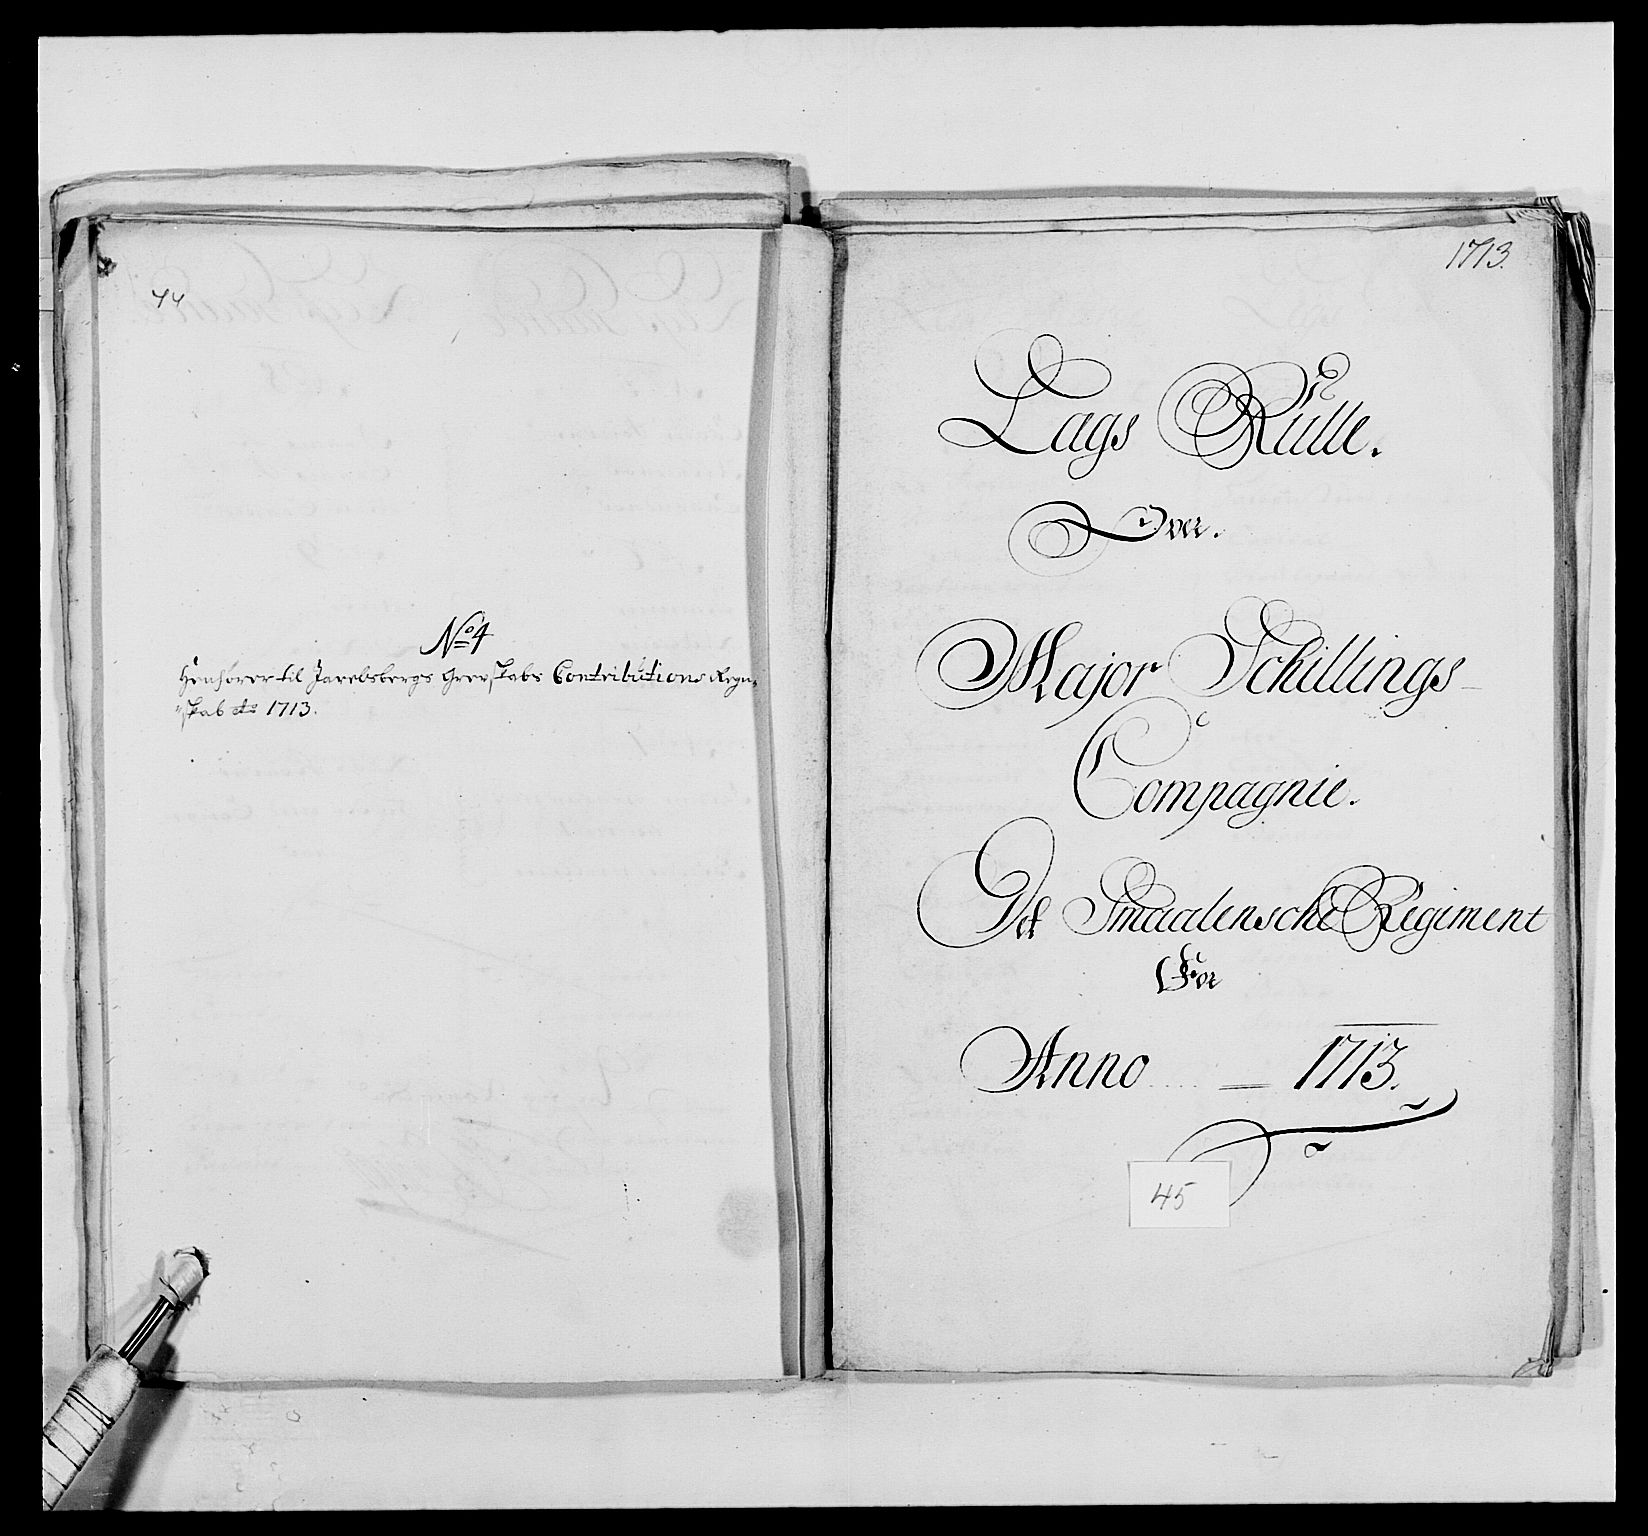 44
No 4
Henhører til Jarelsbergs Grevskabs Contributions Regn-
skab 1713.
1713.
Lags Rulle.
Over.
Major Schillings
Compagnie.
Det Smaalensche Regiment
For
Anno 1713.
45